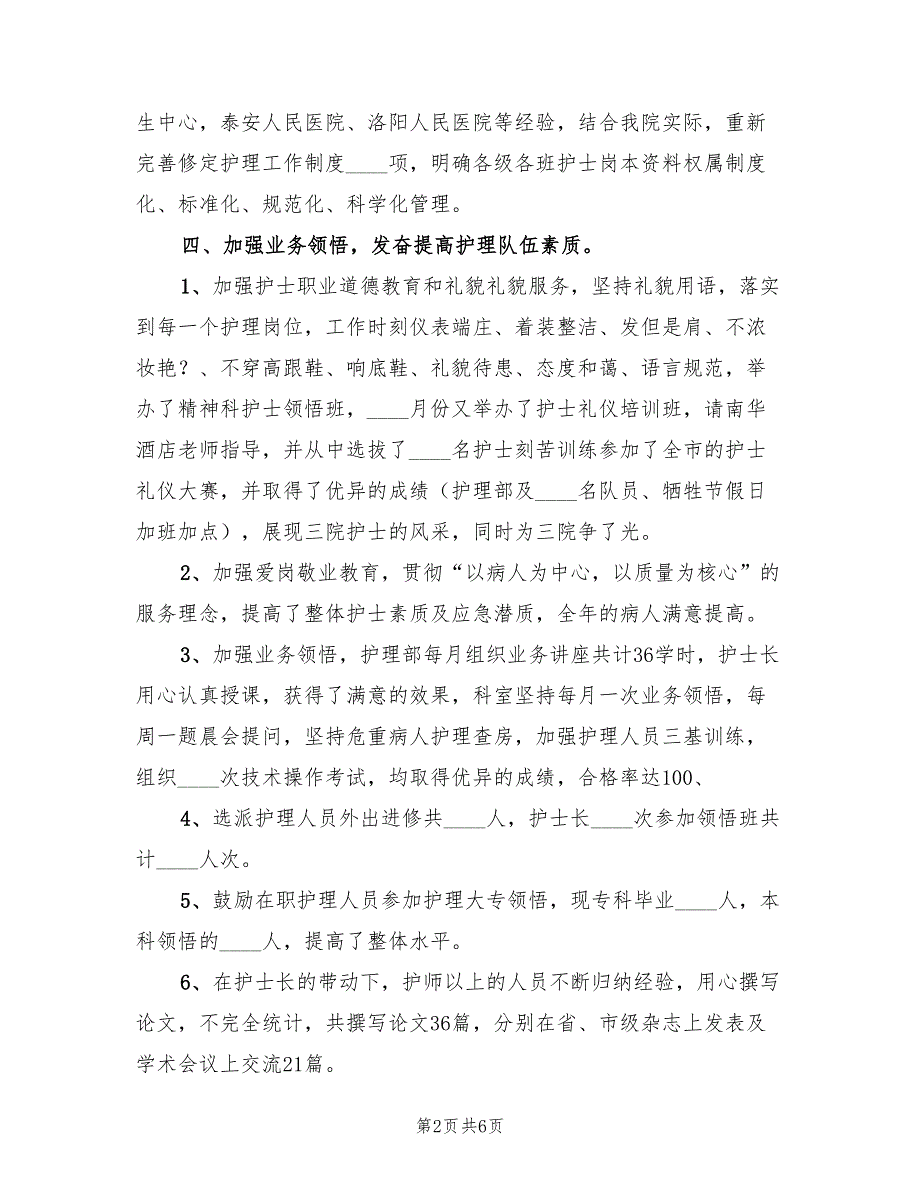 生中心，泰安人民医院、洛阳人民医院等经验，结合我院实际，重新
完善修定护理工作制度____项，明确各级各班护士岗本资料权属制度
化、标准化、规范化、科学化管理。
四、加强业务领悟，发奋提高护理队伍素质。
1、加强护士职业道德教育和礼貌礼貌服务，坚持礼貌用语，落实
到每一个护理岗位，工作时刻仪表端庄、着装整洁、发但是肩、不浓
妆艳？、不穿高跟鞋、响底鞋、礼貌待患、态度和蔼、语言规范，举
办了精神科护士领悟班，____月份又举办了护士礼仪培训班，请南华
酒店老师指导，并从中选拔了____名护士刻苦训练参加了全市的护士
礼仪大赛，并取得了优异的成绩（护理部及____名队员、牺牲节假日
加班加点），展现三院护士的风采，同时为三院争了光。
2、加强爱岗敬业教育，贯彻“以病人为中心，以质量为核心”的
服务理念，提高了整体护士素质及应急潜质，全年的病人满意提高。
3、加强业务领悟，护理部每月组织业务讲座共计36学时，护士长
用心认真授课，获得了满意的效果，科室坚持每月一次业务领悟，每
周一题晨会提问，坚持危重病人护理查房，加强护理人员三基训练，
组织____次技术操作考试，均取得优异的成绩，合格率达100、
4、选派护理人员外出进修共____人，护士长____次参加领悟班共
计____人次。
5、鼓励在职护理人员参加护理大专领悟，现专科毕业____人，本
科领悟的____人，提高了整体水平。
6、在护士长的带动下，护师以上的人员不断归纳经验，用心撰写
论文，不完全统计，共撰写论文36篇，分别在省、市级杂志上发表及
学术会议上交流21篇。
第2页 共6页